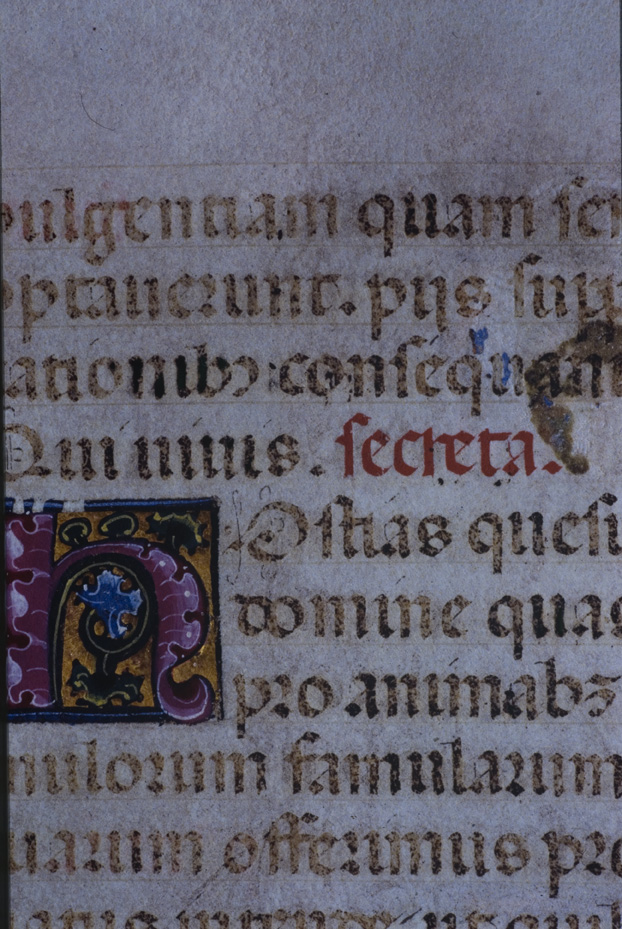 dulgentiam quam sem
optauerunt. pijs supp
ationibꝫ: consequant
Qui uiuis. secreta.
hOstias quesu
domine quas
pro animabꝫ
mulorum famularum
uarum offerimus pro